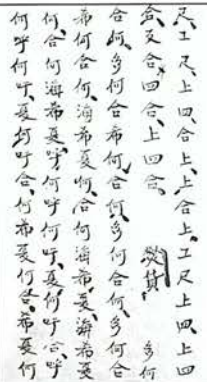 尺、工尺、上四合上、上合上、工尺上四、上四
合、四合、上四合、多何
合何、多何合希何、合何、多何合何、多何合
希何合何、海希夏啊合何海希夏、海希夏
何、合何海希夏、呼何呼何吁、夏何吁合、呼
何呼何吁、夏何吁合、何希夏何合、希夏何